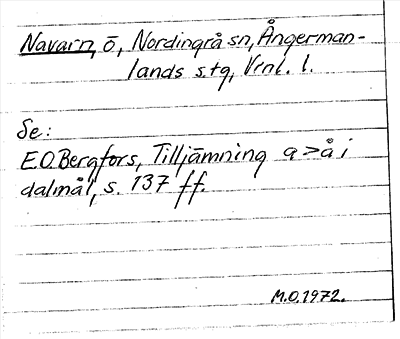 Navarn, ö, Nordingrå sn, Ångerman-
lands s.tg, Vrnl. l.
Se:
E.O. Bergfors, Tilljämning a > å i
dalmål, s. 137 ff.
M.O. 1972.